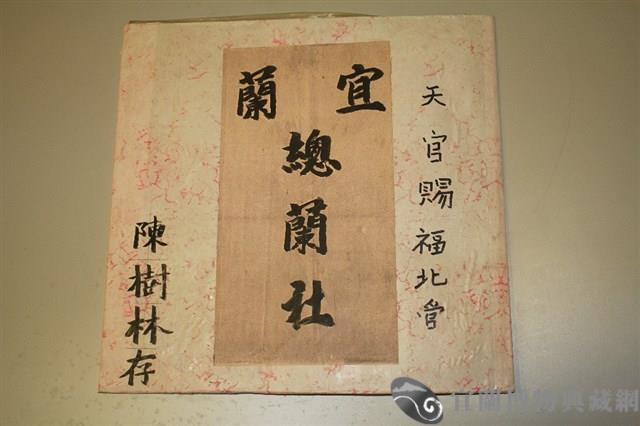 天官賜福北管
宜蘭
總蘭社
陳樹林存
宜蘭博物典藏網